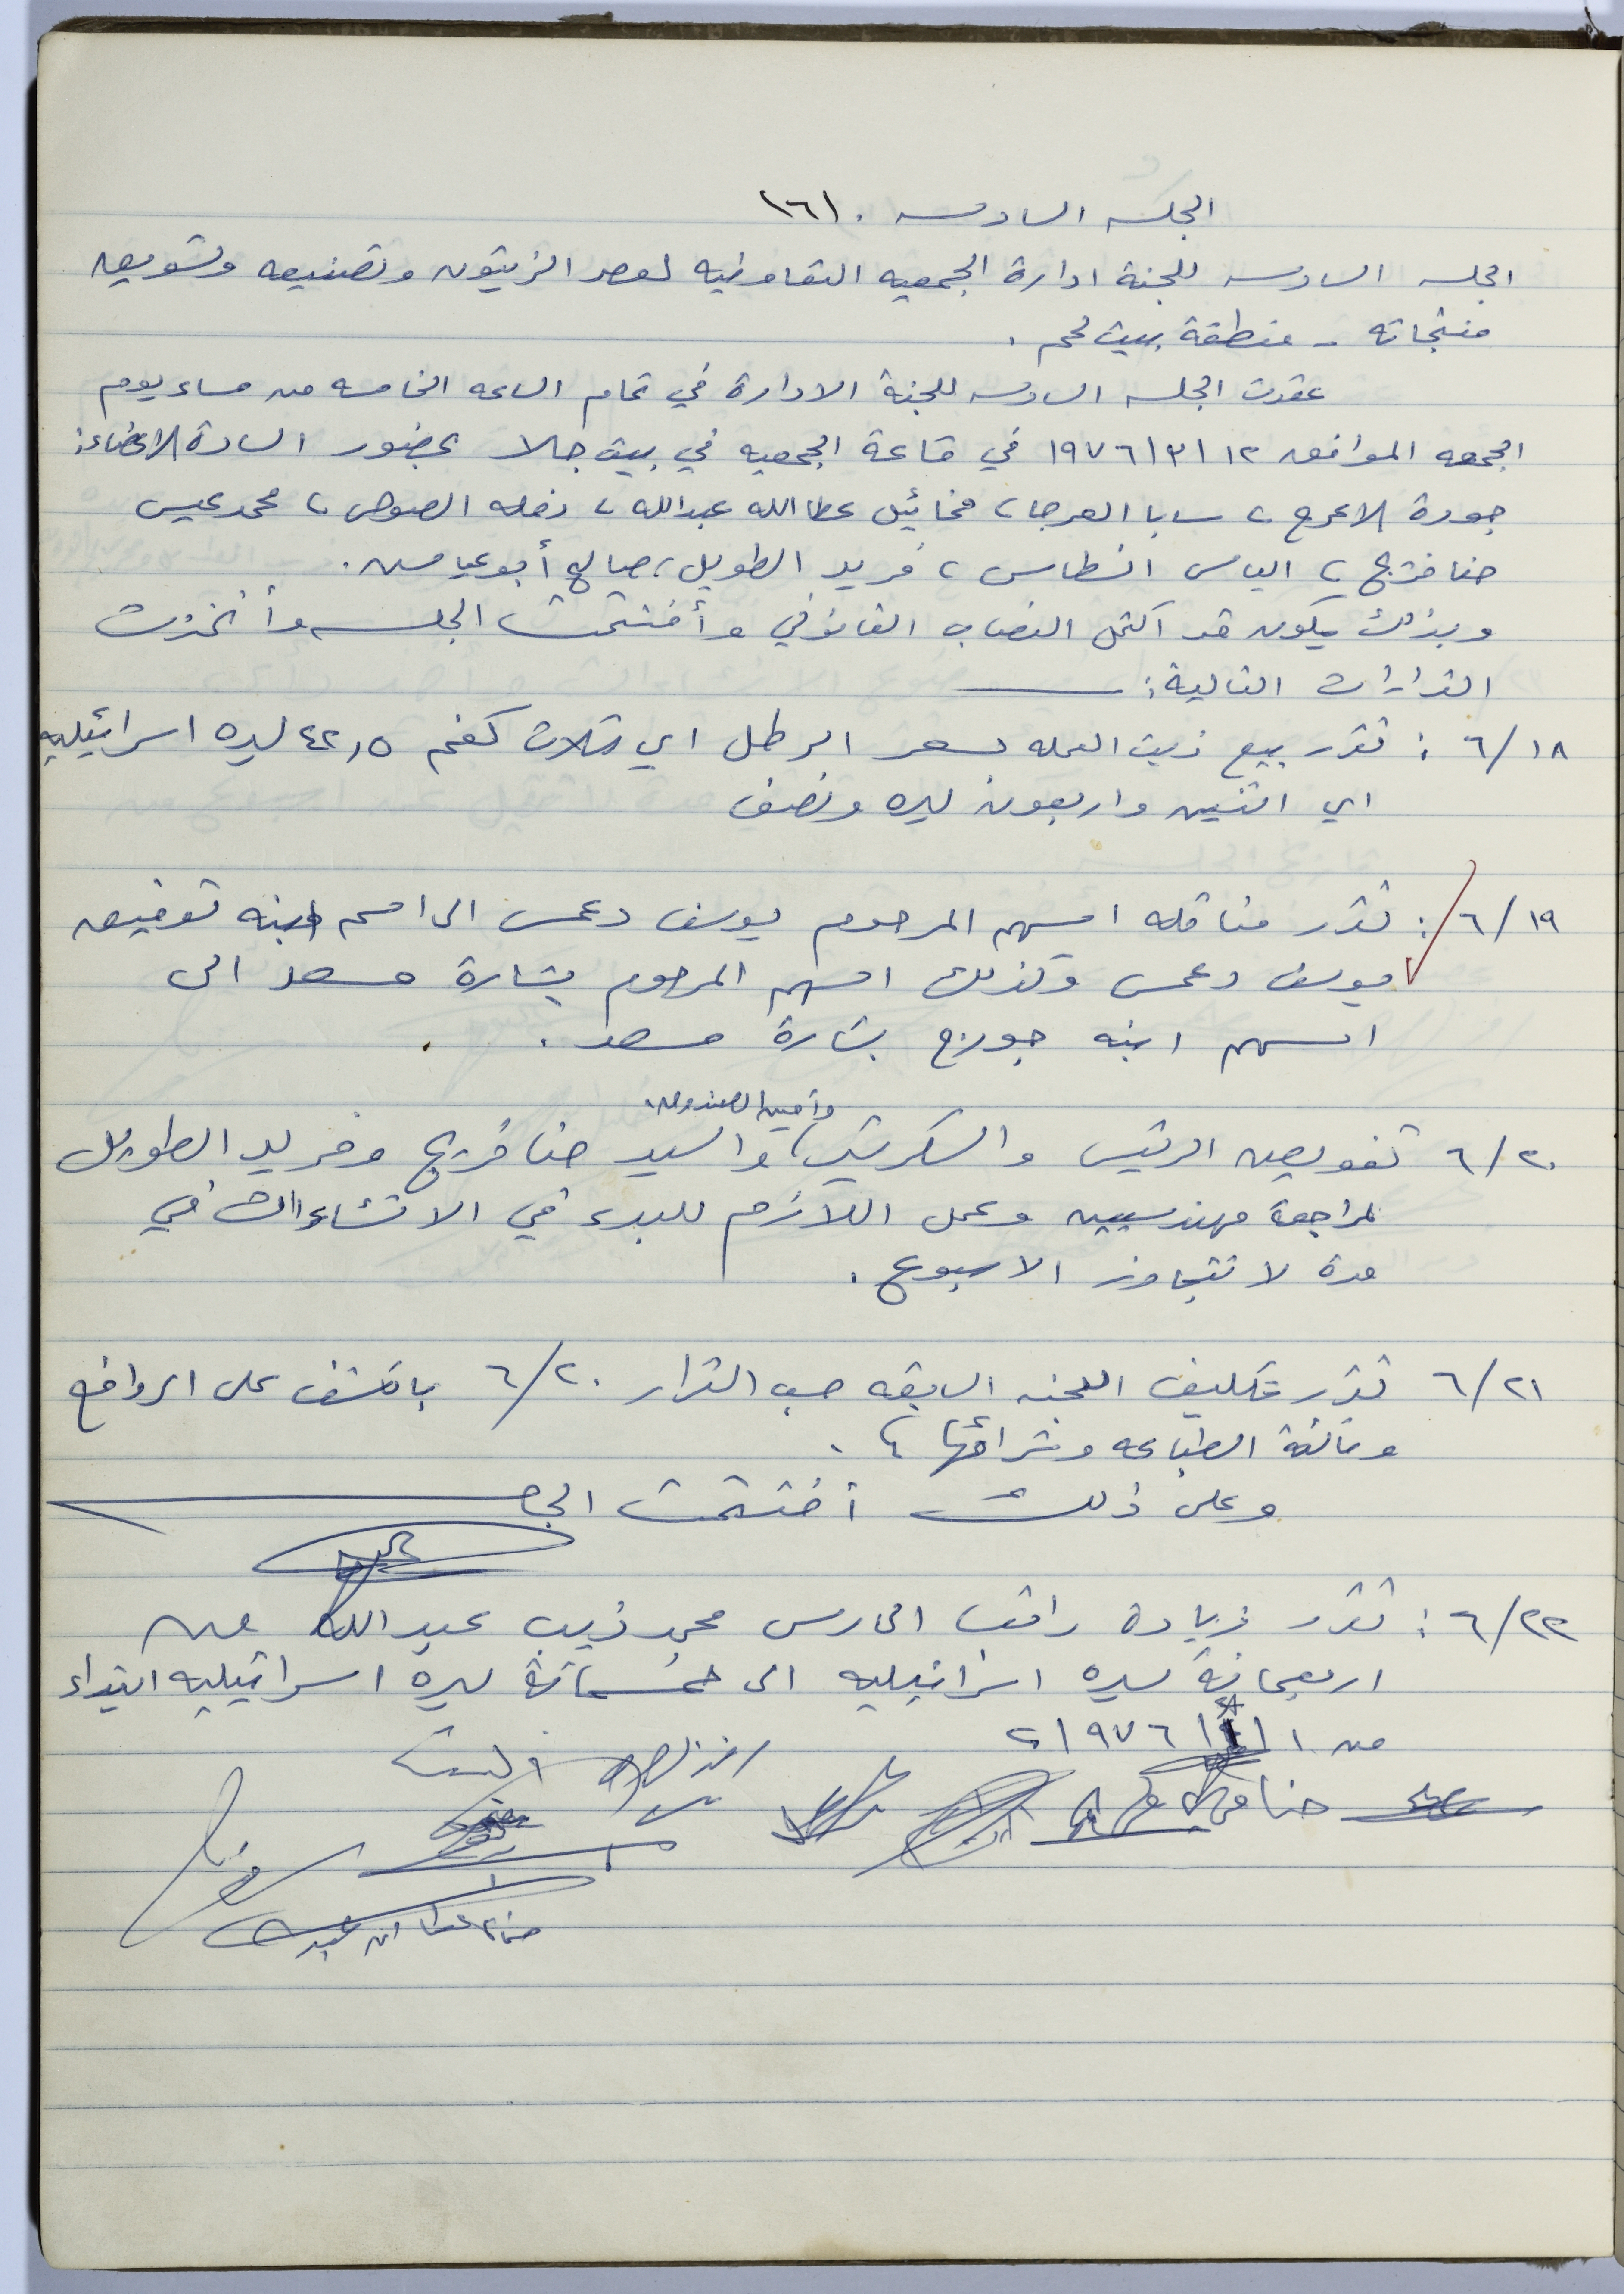 الجلسه السادسه . (٦)
الجلسه السادسه للجنة ادارة الجمعيه التعاونيه لعصر الزيتون وتصنيعه وتسويق
منتجاته - منطقة بيت لحم .
عقدت الجلسه السادسه للجنة الادارة في تمام الساعه الخامسه من مساء يوم
الجمعه الموافق ١٢ /٣/ ١٩٧٦ في قاعة الجمعيه في بيت جالا بحضور السادة الاعضاء:
جودة الاعرج ، سابا العرجا ، مخائيل عطاالله عبدالله ، نخله الصوص ، محمد عيس
حنا فريج ، الياس انسطاس ، فريد الطويل ، صالح أبو عيا
وبذلك يكون قد اكتمل النصاب القانوني وأفتتحت الجلسه وأتخذت
القرارات التالية :
٦/١٨ : تقرر بيع زيت العمله بسعر الرطل اي ثلاث كغم ٤٢,٥ ليره اسرائيليه
اي اثنين واربعون ليره ونصف
٦/١٩ : تقرر مناقله اسهم المرحوم يوسف دعمس الى اسم ابنه توفيق
يوسف دعمس وكذلك اسهم المرحوم بشارة مسعد الى
اسهم ابنه جورج بشارة مسعد .
وأمين الصندوق
٦/٢٠ تفويض الرئيس والسكرتير ، والسيد حنا فريج وفريد الطويل
لمراجعة مهندسين وعمل اللازم للبدء في الانشاءات في
مدة لا تتجاوز الاسبوع .
٦/٢١ تقرر تكليف اللجنه السابقه حسب القرار ٦/٢٠ بالكشف على الروافع
الطباعه وشرائها .
وعلى ذلك أختتمت الج
٦/٢٢ : تقرر زيادة راتب الحارس محمد ذيب عبدالله من
اربعمائة ليره اسرائيليه الى خمسمائة ليره اسرائيليه ابتداء
من ١/ / ١٩٧٦
حنا فريج